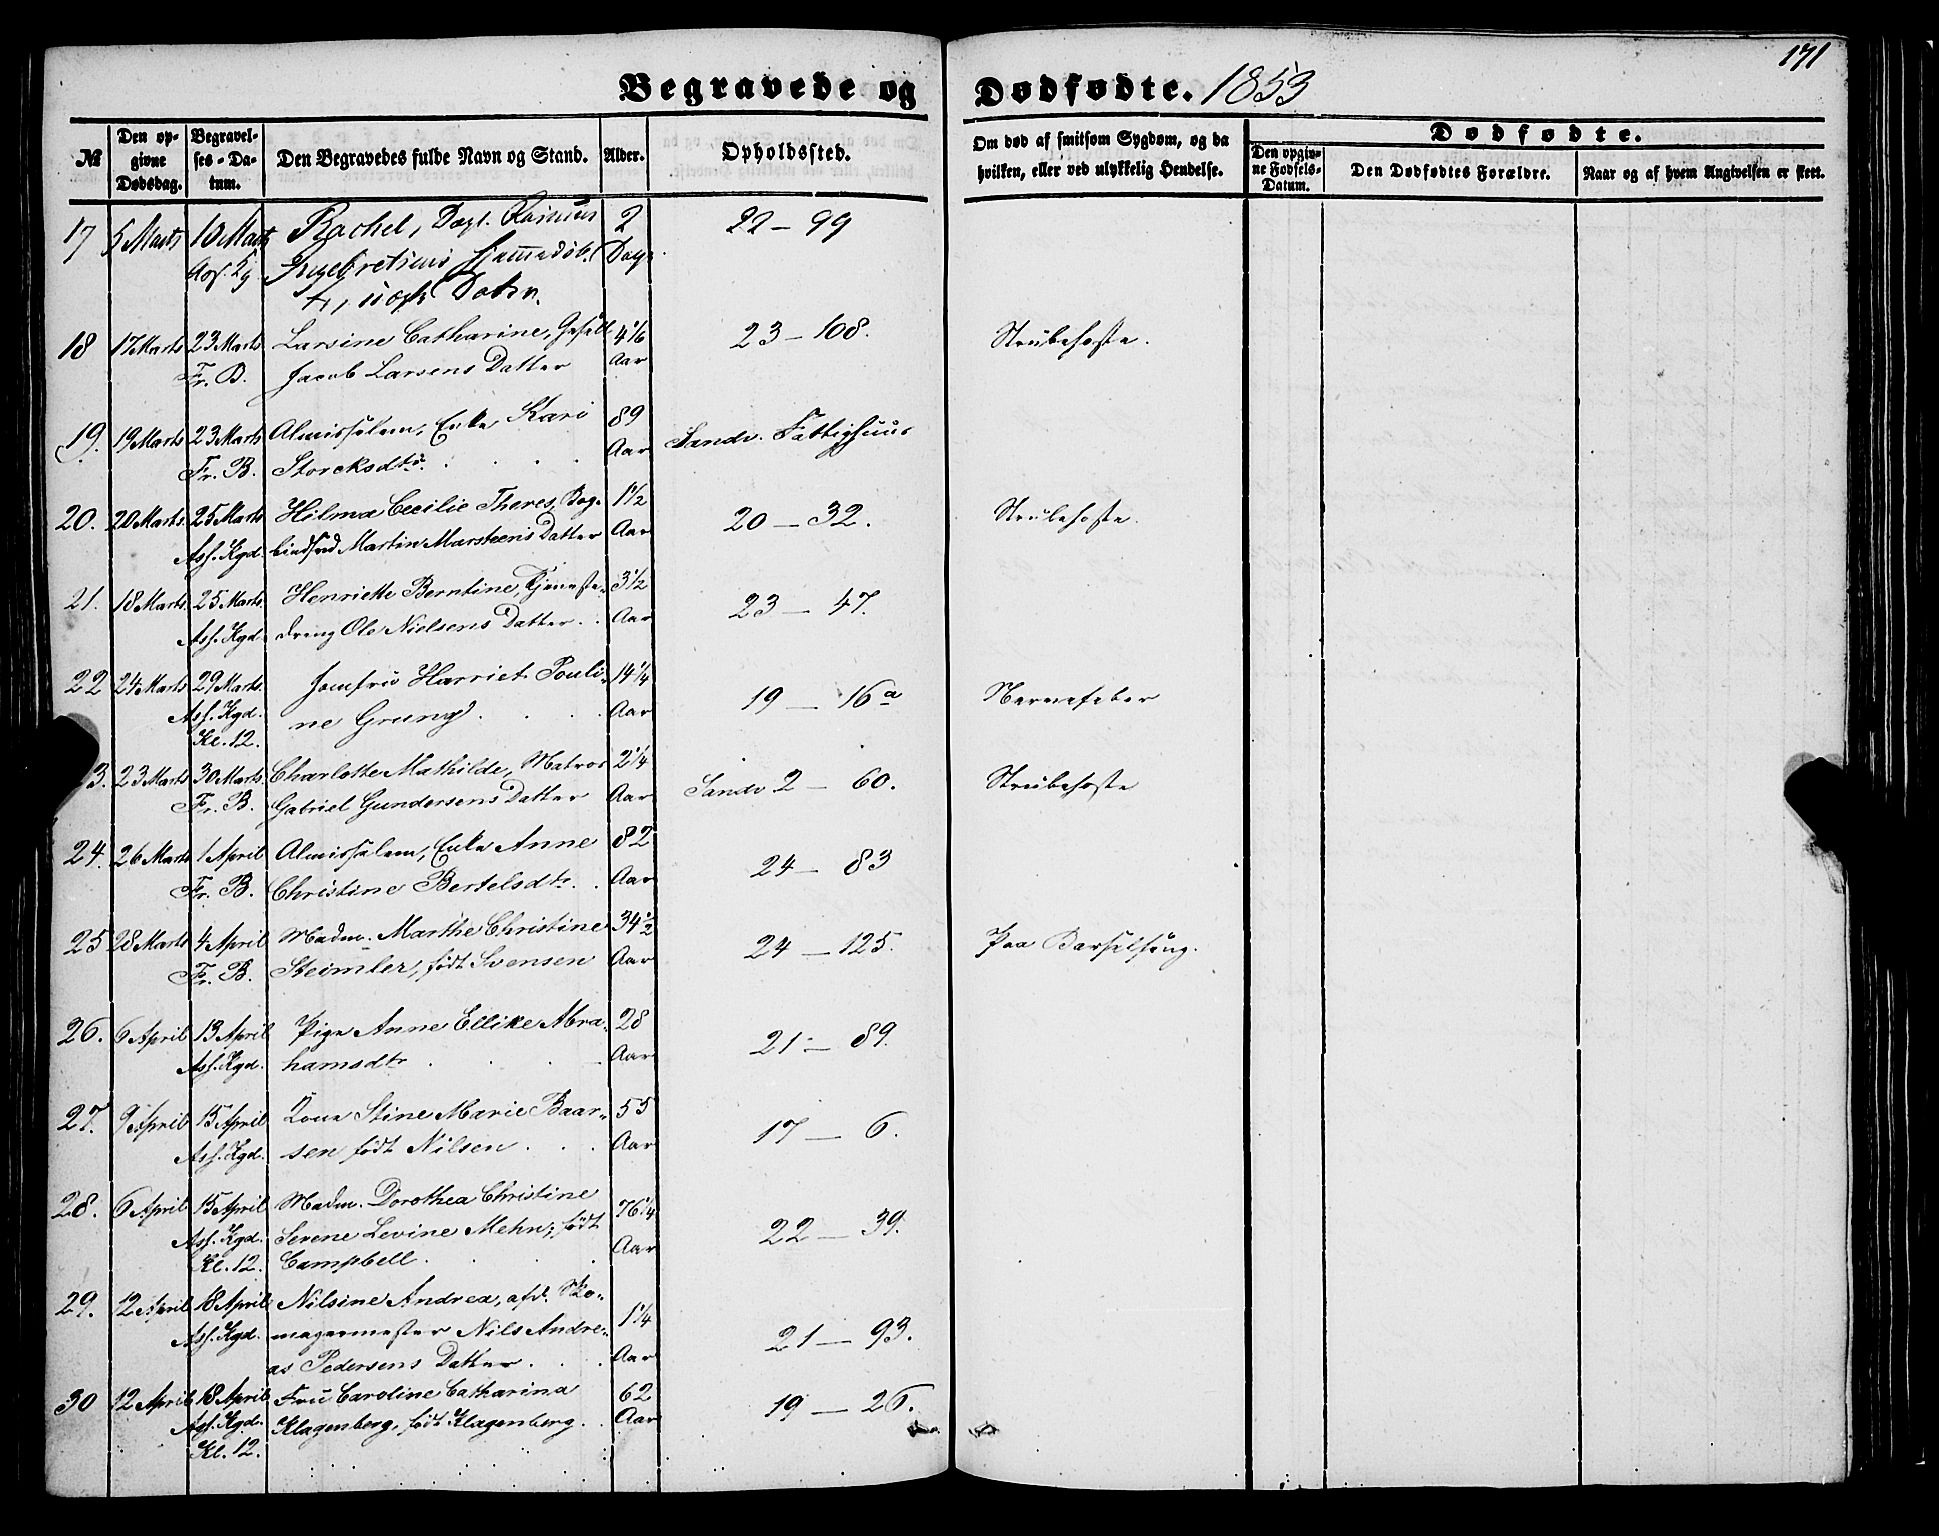 171
Begravede og Dødfødte. 1853
№ Den opgivne Dødsdag. Begravelses-Datum. Den Begravedes fulde Navn og Stand. Alder. Opholdssted. Om død af smitsom Sygdom, og da hvilken, eller ved ulykkelig Hendelse. Dødfødte. Den opgivne Fødsels-Datum. Den Dødfødtes Forældre. Naar og af hvem Angivelsen er skeet.
17 5 Marts 10 Marts Rachel, Dagl. Rasmus 2 22 – 99
Ass. Kg Ingebretsens Dage
Datter
18 17 Marts 23 Marts Larsine Catharine, Gesell 4 1/6 23 – 108. Strubehoste.
Fr. B. Jacob Larsens Datter Aar
19. 19 Marts 23 Marts Almisselem, Enke Kari 89 Sandv. Fattighuus
Fr. B. Storcksdtr. Aar
20. 20 Marts. 25 Marts Hilma Cecilie Theres, Bog- 1 1/2 20 – 32. Strubehoste.
Ass. Kgd. bindsvd Martin Marsteens Datter Aar
21. 18 Marts. 25 Marts. Henriette Berntine, Tjeneste- 3 1/2 23 – 47.
Ass. Kgd. dreng Ole Nielsens Datter. Aar
22 24 Marts 29 Marts. Jomfru Harriet Pouli- 14 1/4 19 – 16a Nervefeber
Ass. Kgd. ne Grung. Aar
Kl. 12.
3. 23 Marts 30 Marts. Charlotte Mathilde, Matros 2 1/4 Sandv 2 – 60. Strubehoste
Fr. B. Gabriel Gundersens Datter Aar
24. 26 Marts 1 April Almisselem, Enke Anne 82 24 – 83
Fr. B. Christine Bertelsdtr. Aar
25 28 Marts 4 April Madm. Marthe Christine 34 1/2 24 – 125. Paa Barselseng.
Fr. B. Steimler, født Svensen Aar
26. 6 April 13 April Pige Anne Ellike Abra- 28 21 – 89.
Ass. Kgd. hamsdtr Aar
27. 9 April 15 April Kone Stine Marie Baar- 55 17 – 6.
Ass. Kgd. sen født Nilsen Aar
28. 6 April 15 April Madm. Dorothea Christine 76 1/4 22 – 39.
Ass. Kgd. Serene Levine Mehn; født Aar
Kl. 12. Campbell.
29. 12 April 18 April Nilsine Andrea, afd. Sko- 1 1/4 21 – 93.
Ass. Kgd. magermester Nils Andre- Aar
as Pedersens Datter.
30 12 April 18 April Fru Caroline Catharina 62 19 – 26.
Ass. Kgd. Klagenberg, født Klagenberg. Aar
Kl. 12.